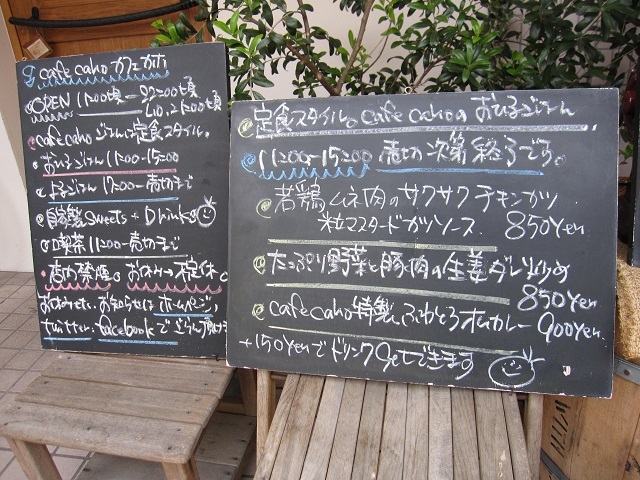 cafe caho カフェ カホ
OPEN 11:00頃-22:00頃
L.O.21:00頃
cafe caho ごはんは定食スタイル。
おひるごはん 11:00-15:00
よるごはん 17:00-売切まで
自家製 Sweets + Drink
喫茶 11:00-売切まで
店内禁煙。お休みは不定休。
お休みetc. お知らせは ホームページ、
facebookで
定食スタイル。cafe cahoの おひるごはん
11:00-15:00 売切次第終了です。
若鶏ムネ肉のサクサクチキンカツ
粒マスタードカツソース 850yen
たっぷり野菜と豚肉の生姜ダレ炒め
850yen
cafe caho特製、ふわとろオムカレー 900yen
+150yenでドリンクgetできます